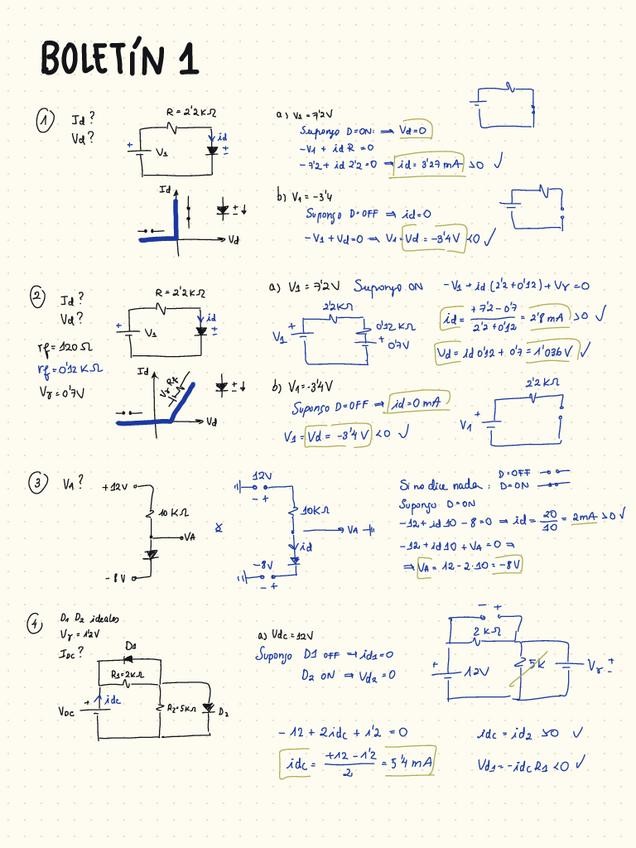 BOLETÍN 1
1
Id?
Vd?
R = 2'2 KΩ
V1
id
Id
Vd
a) V1 = 7'2V
Supongo D=ON: ⇒ Vd=0
-V1 + id R = 0
-7'2 + id 2'2 = 0 ⇒ id = 3'27 mA >0 ✓
b) V1 = -3'4
Supongo D=OFF ⇒ id=0
-V1 + Vd = 0 ⇒ V1 = Vd = -3'4 V <0 ✓
2
Id?
Vd?
rf = 120 Ω
rf = 0'12 KΩ
Vγ = 0'7V
R = 2'2 KΩ
V1
id
Id
Vγ Rf
Vd
a) V1 = 7'2V Supongo ON -V1 + id (2'2 + 0'12) + Vγ = 0
2'2 KΩ
V1
0'12 KΩ
0'7V
id = +7'2 - 0'7 / 2'2 + 0'12 = 2'8 mA >0 ✓
Vd = id 0'12 + 0'7 = 1'036 V ✓
b) V1 = -3'4V
Supongo D=OFF ⇒ id = 0 mA
V1 = Vd = -3'4 V <0 ✓
2'2 KΩ
V1
3
VA?
+12V
10 KΩ
VA
-8V
12V
- +
10KΩ
VA
id
-8V
- +
Si no dice nada: D=OFF
D=ON
Supongo D=ON
-12 + id 10 - 8 = 0 ⇒ id = 20/10 = 2mA >0 ✓
-12 + id 10 + VA = 0 ⇒
⇒ VA = 12 - 2·10 = -8V
4
D1 D2 ideales
Vγ = 12V
IDC?
D1
R1=2KΩ
idc
VDC
R2=5KΩ
D2
a) Vdc = 12V
Supongo D1 OFF → id1 = 0
D2 ON ⇒ Vd2 = 0
- +
2 KΩ
12V
5K
Vγ
-12 + 2idc + 1'2 = 0
idc = +12 - 1'2 / 2 = 5'4 mA
idc = id2 >0 ✓
Vd1 = -idc R1 <0 ✓